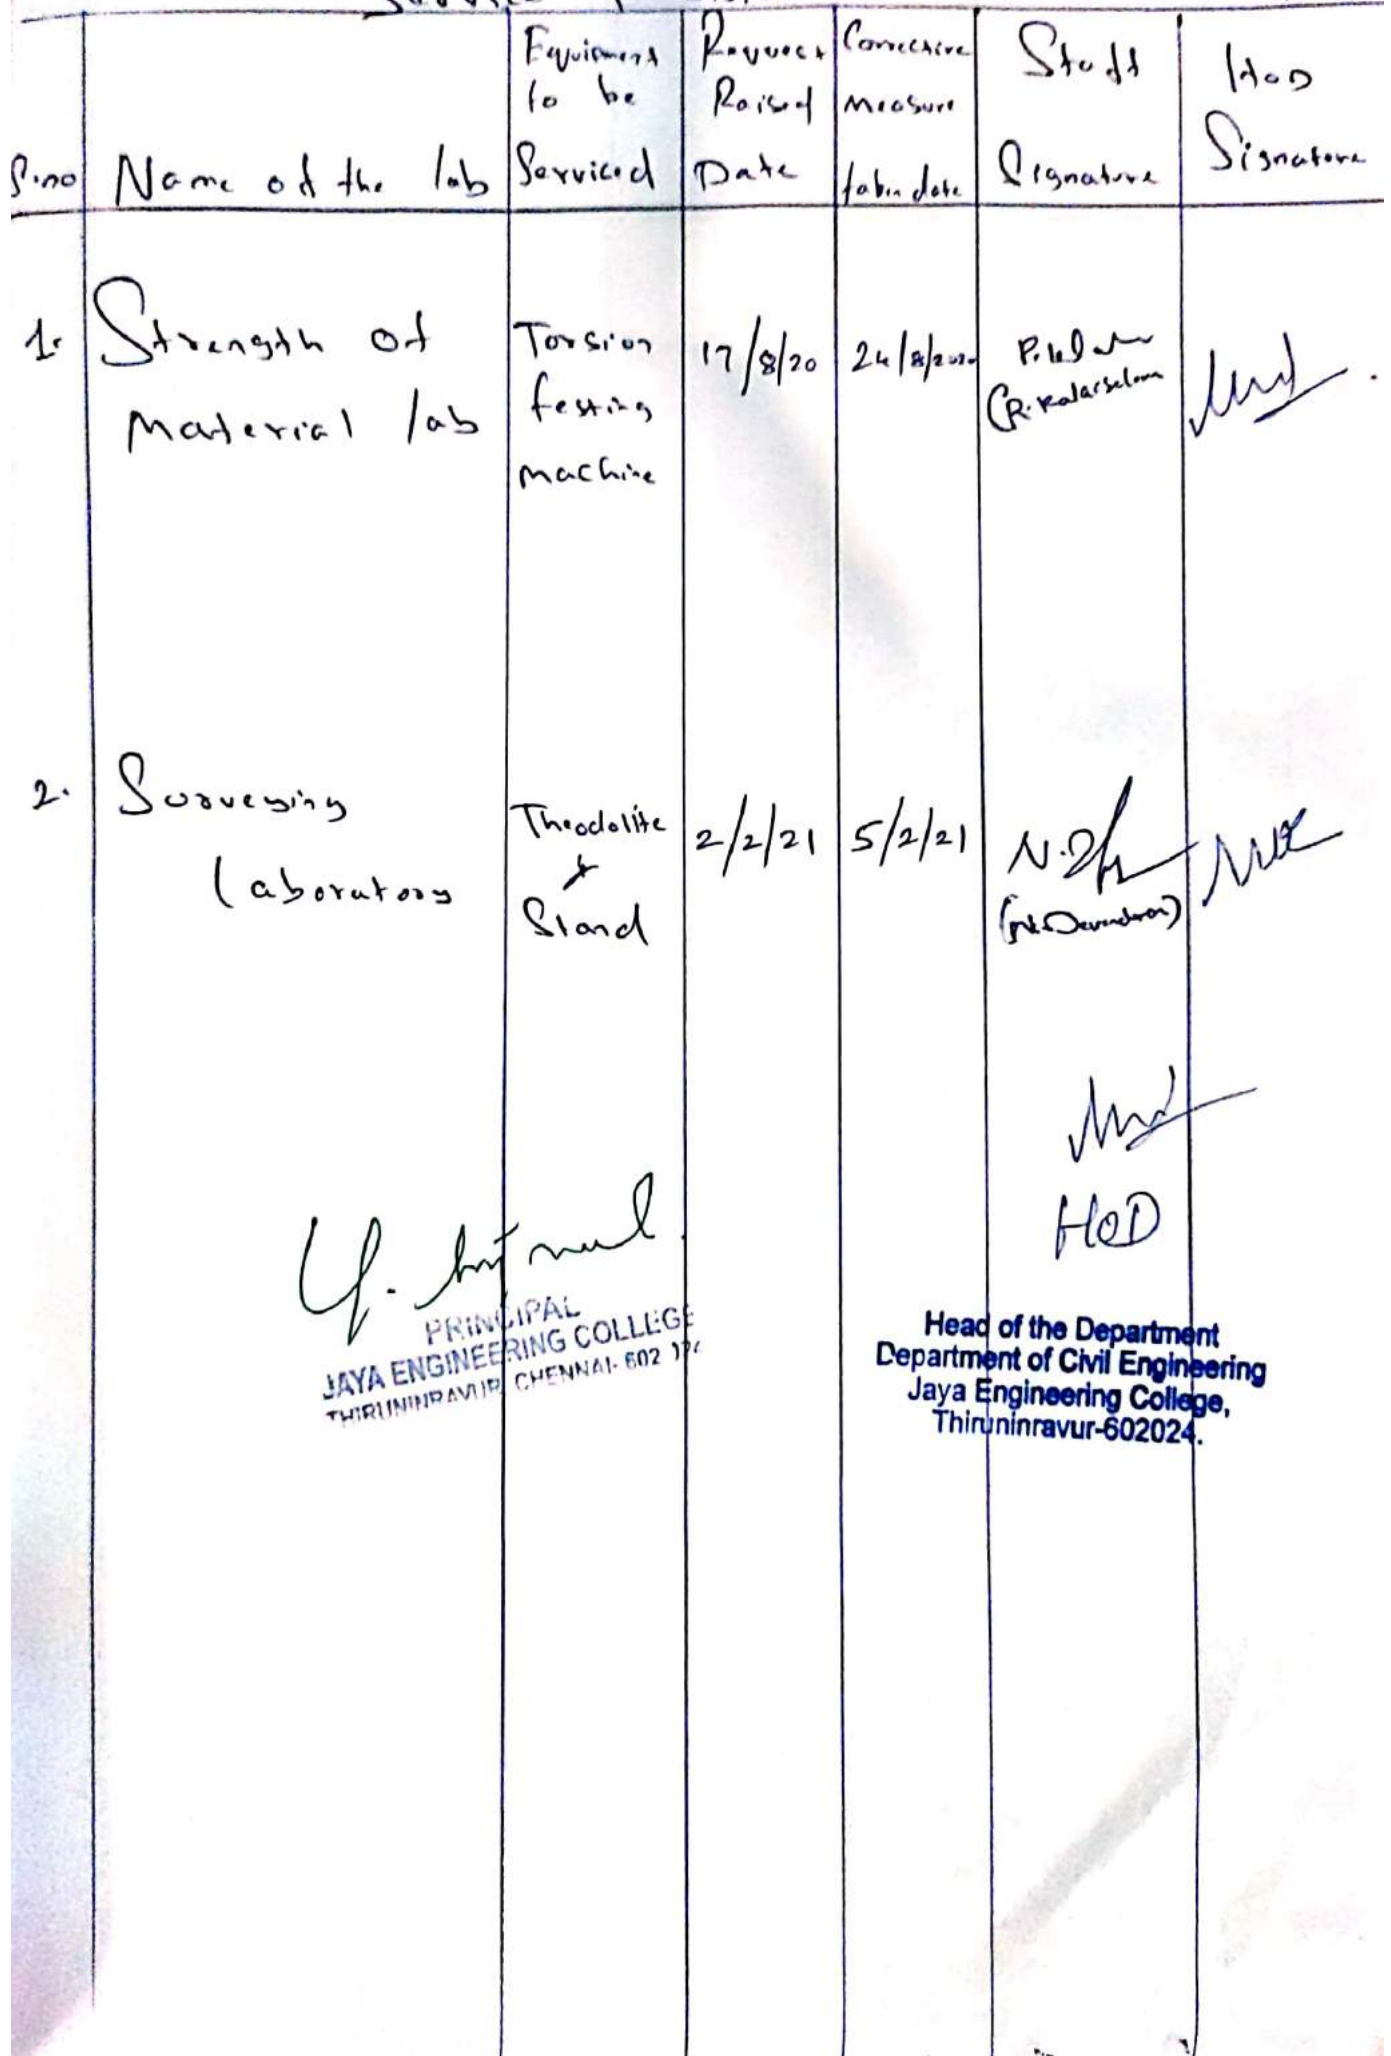 S.no
Name of the lab
Equipment
to be
Serviced
Request
Raised
Date
Corrective
measure
taken date
Staff
Signature
HOD
Signature
1.
Strength of
Material lab
Torsion
testing
machine
17/8/20
24/8/2020
2.
Surveying
Laboratory
Theodolite
&
Stand
2/2/21
5/2/21
(N. Devendran)
HOD
PRINCIPAL
JAYA ENGINEERING COLLEGE
THIRUNINRAVUR, CHENNAI- 602
Head of the Department
Department of Civil Engineering
Jaya Engineering College,
Thiruninravur-602024.